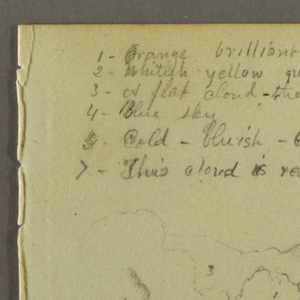 1 - Orange brilliant
2 - Whitish yellow
3 - A flat cloud - the
4 - Blue sky
5 - Cold - bluish -
7 - This cloud is
3